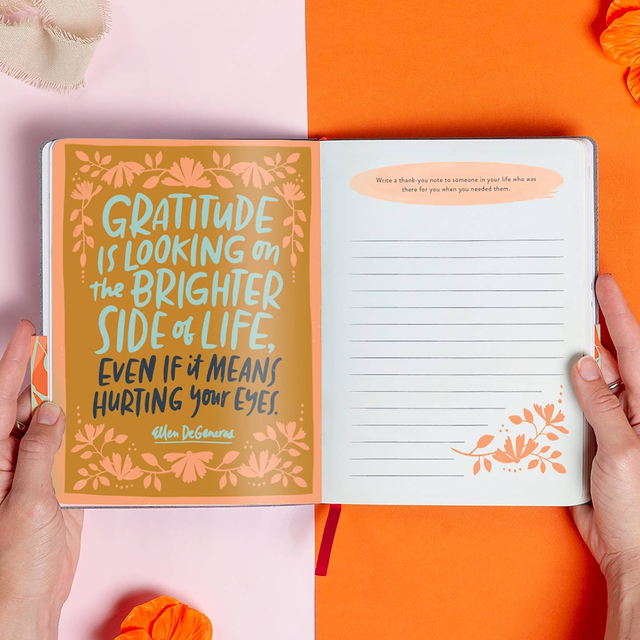 GRATITUDE
IS LOOKING on
the BRIGHTER
SIDE of LIFE,
EVEN IF it MEANS
HURTING your EYES.
Ellen DeGeneres
Write a thank-you note to someone in your life who was
there for you when you needed them.